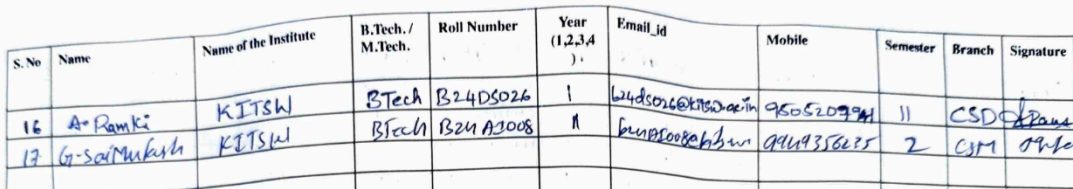 S. No Name Name of the Institute B.Tech. / M.Tech. Roll Number Year (1,2,3,4 ) Email_id Mobile Semester Branch Signature
16 A. Ramki KITSW BTech B24DS026 1 b24ds026@kitsw.ac.in 11 CSD
17 G. Sai Mukesh KITSW BTech B24AI008 2 CSM